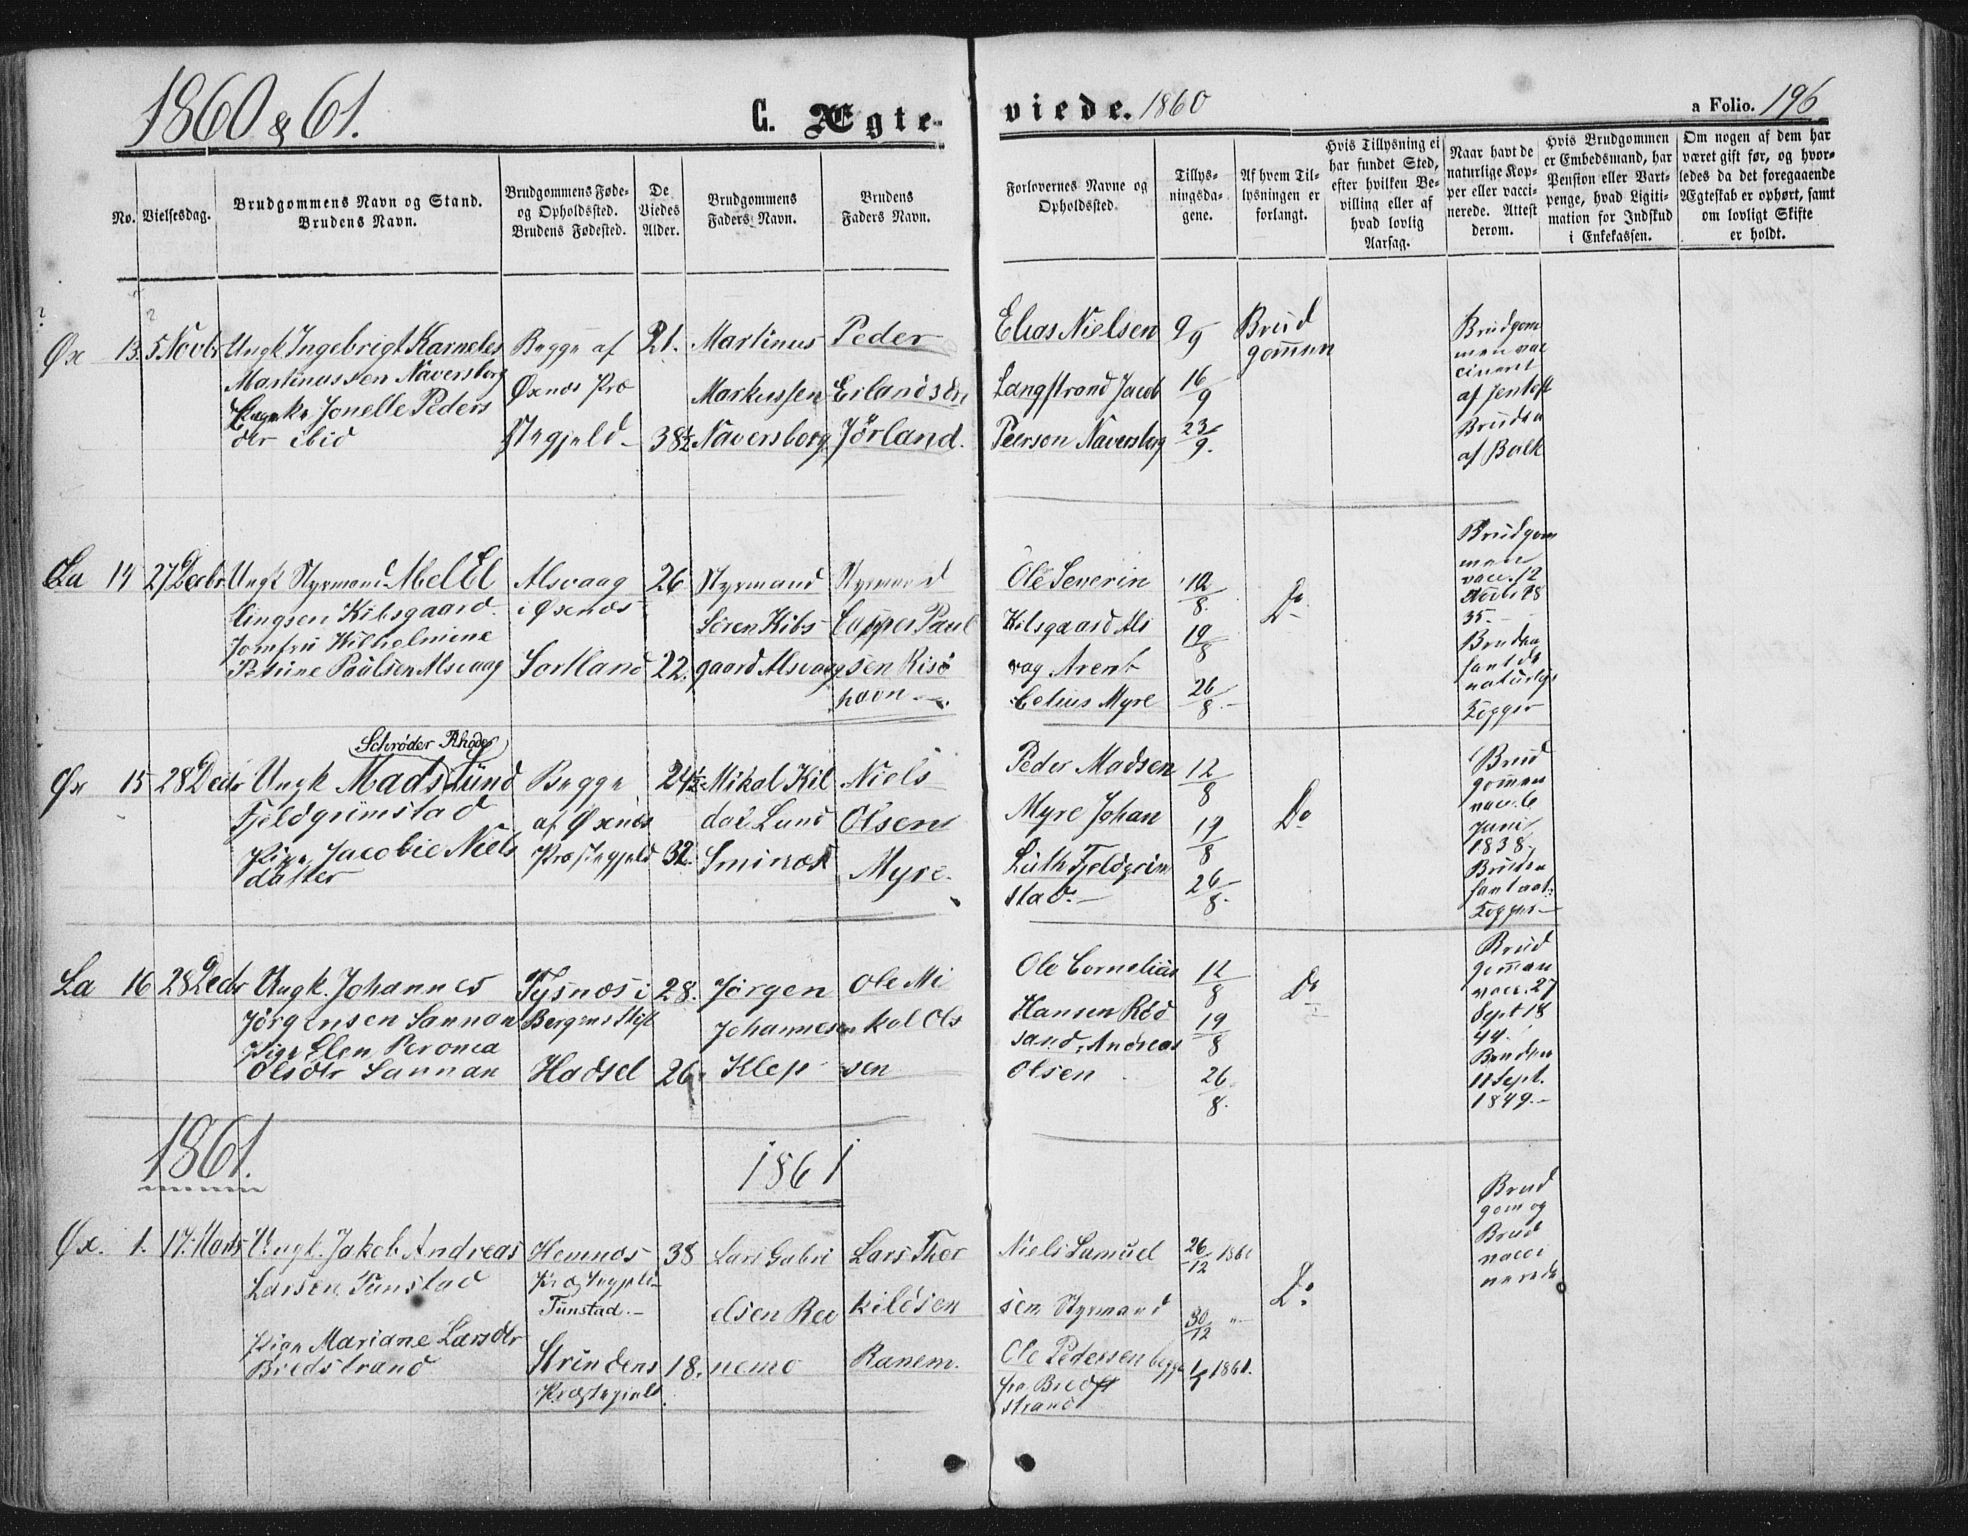 1860 & 61.
C. Ægte-
viede. 1860
a Folio. 196
No.
Vielsesdag.
Brudgommens Navn og Stand.
Brudens Navn.
Brudgommens Føde-
og Opholdssted.
Brudens Fødested.
De
Viedes
Alder.
Brudgommens
Faders Navn.
Brudens
Faders Navn.
Forlovernes Navne og
Opholdssted.
Tillys-
ningsda-
gene.
Af hvem Til-
lysningen er
forlangt.
Hvis Tillysning ei
har fundet Sted,
efter hvilken Be-
villing eller af
hvad lovlig
Aarsag.
Naar havt de
naturlige Kop-
per eller vacci-
nerede. Attest
derom.
Hvis Brudgommen
er Embedsmand, har
Pension eller Vart-
penge, hvad Ligiti-
mation for Indskud
i Enkekassen.
Om nogen af dem har
været gift før, og hvor-
ledes da det foregaaende
Ægteskab er ophørt, samt
om lovligt Skifte
er holdt.
Øx 13. 5 Novbr
Ungk Ingebrigt Karneles
Martinussen Naversborg
Jonelle Peders
dtr ibid
Begge af
Øxnes Præ
stegjeld
21.
38½
Martinus
Markussen
Naversborg
Peder
Erlandsen
Jörland.
Elias Nielsen
Langstrand Jacob
Peerson Naversborg
9/9
16/9
23/9.
Brud
gommen
Brudgom
men vac
cineret
af Jentoft
Bruden
af Balk
La 14 27 Decbr
Ungk Styrmand Abel El
lingsen Kibsgaard.
Jomfru Wilhelmine
Petrine Paulsen Alsvaag
Alsvaag
i Øxnæs
Sortland
26
22.
Styrmand
Sören Kibs
gaard Alsvaag
Styrmand
Casper Paul
sen Risö
havn
Ole Severin
Kibsgaard Als
vag Arent
Celius Myre
12/8.
19/8
26/8.
Do
Brudgom
men
vacc. 12
Novbr 18
35.
Bruden
havt de
naturlige
Kopper
Øx 15 28 Decbr
Schrøder Rhodes
Ungk Mads Lund
Fjeldgrimstad
Pige Jacobie Niels
datter
Begge
af Øxnæs
Præstegjeld
24½
32.
Mikal Kil
dal Lund
Sminæs
Niels
Olsen
Myre.
Peder Madsen
Myre Johan
Lüth Fjeldgrim
stad.
12/8
19/8
26/8.
Do
Brud
gommen
vacc. 6
Juni
1838,
Bruden
havt nat:
Kopper
La 16 28 Decbr
Ungk. Johannes
Jörgensen Sannan
Pige Elen Peronea
Olsdtr Sannan
Tysnæs i
Bergens Stift
Hadsel
28.
26.
Jørgen
Johannesen
Klep
Ole Mi
kal Ols
sen
Ole Cornelius
Hansen Röd
sand, Andreas
Olsen
12/8
19/8
26/8.
Do
Brud
gomman
vacc. 27
Sept 18
44.
Bruden
11 Sept.
1849.
1861.
1861
Øx. 1. 17. Marts
Ungk. Jakob Andreas
Larsen Tunstad
Pige Mariane Larsdtr
Bredstrand
Hemnæs
Præstegjeld
Tunstad.
Strindens
Præstegjeld.
38
18.
Lars Gabri
elsen Ree
nemo
Lars Ther
kildsen
Ranem.
Niels Samuel
sen Styrmand
Ole Pedersen begge
fra Bred
strand
26/12 1860
30/12 "
1/1 1861.
Do
Brud
gom og
Brud
vacci
nerede